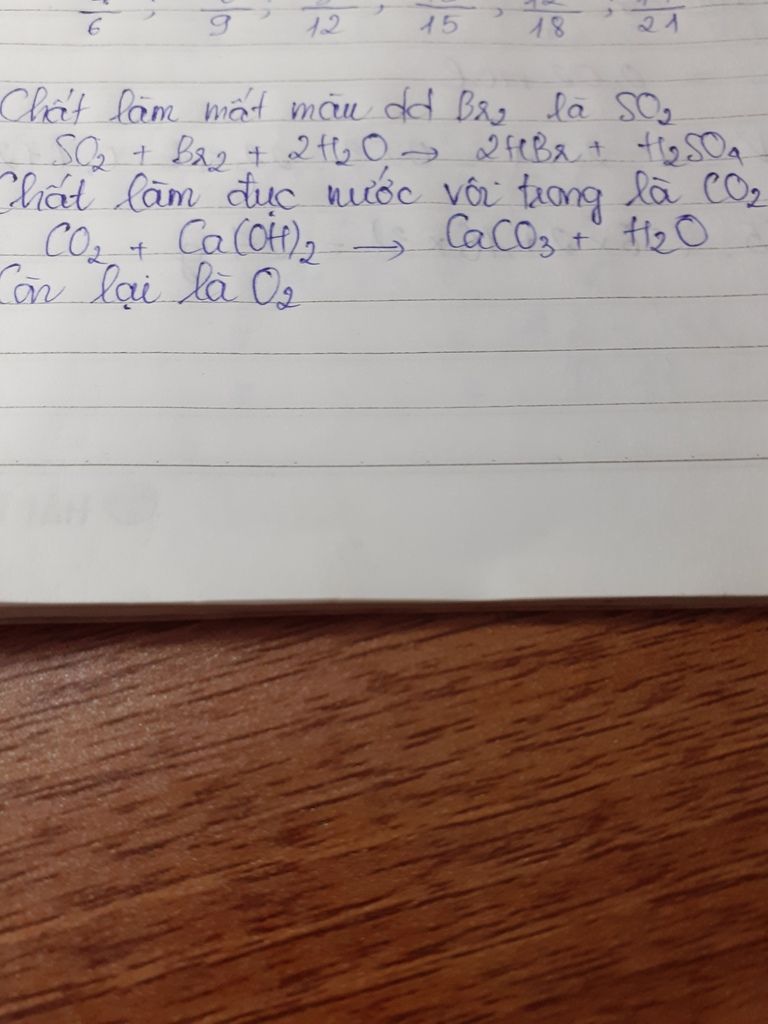 6 ; 9 ; 12 , 15 , 18 ; 21
Chất làm mất màu dd Br2 là SO2
SO2 + Br2 + 2H2O → 2HBr + H2SO4
Chất làm đục nước vôi trong là CO2
CO2 + Ca(OH)2 → CaCO3 + H2O
Còn lại là O2